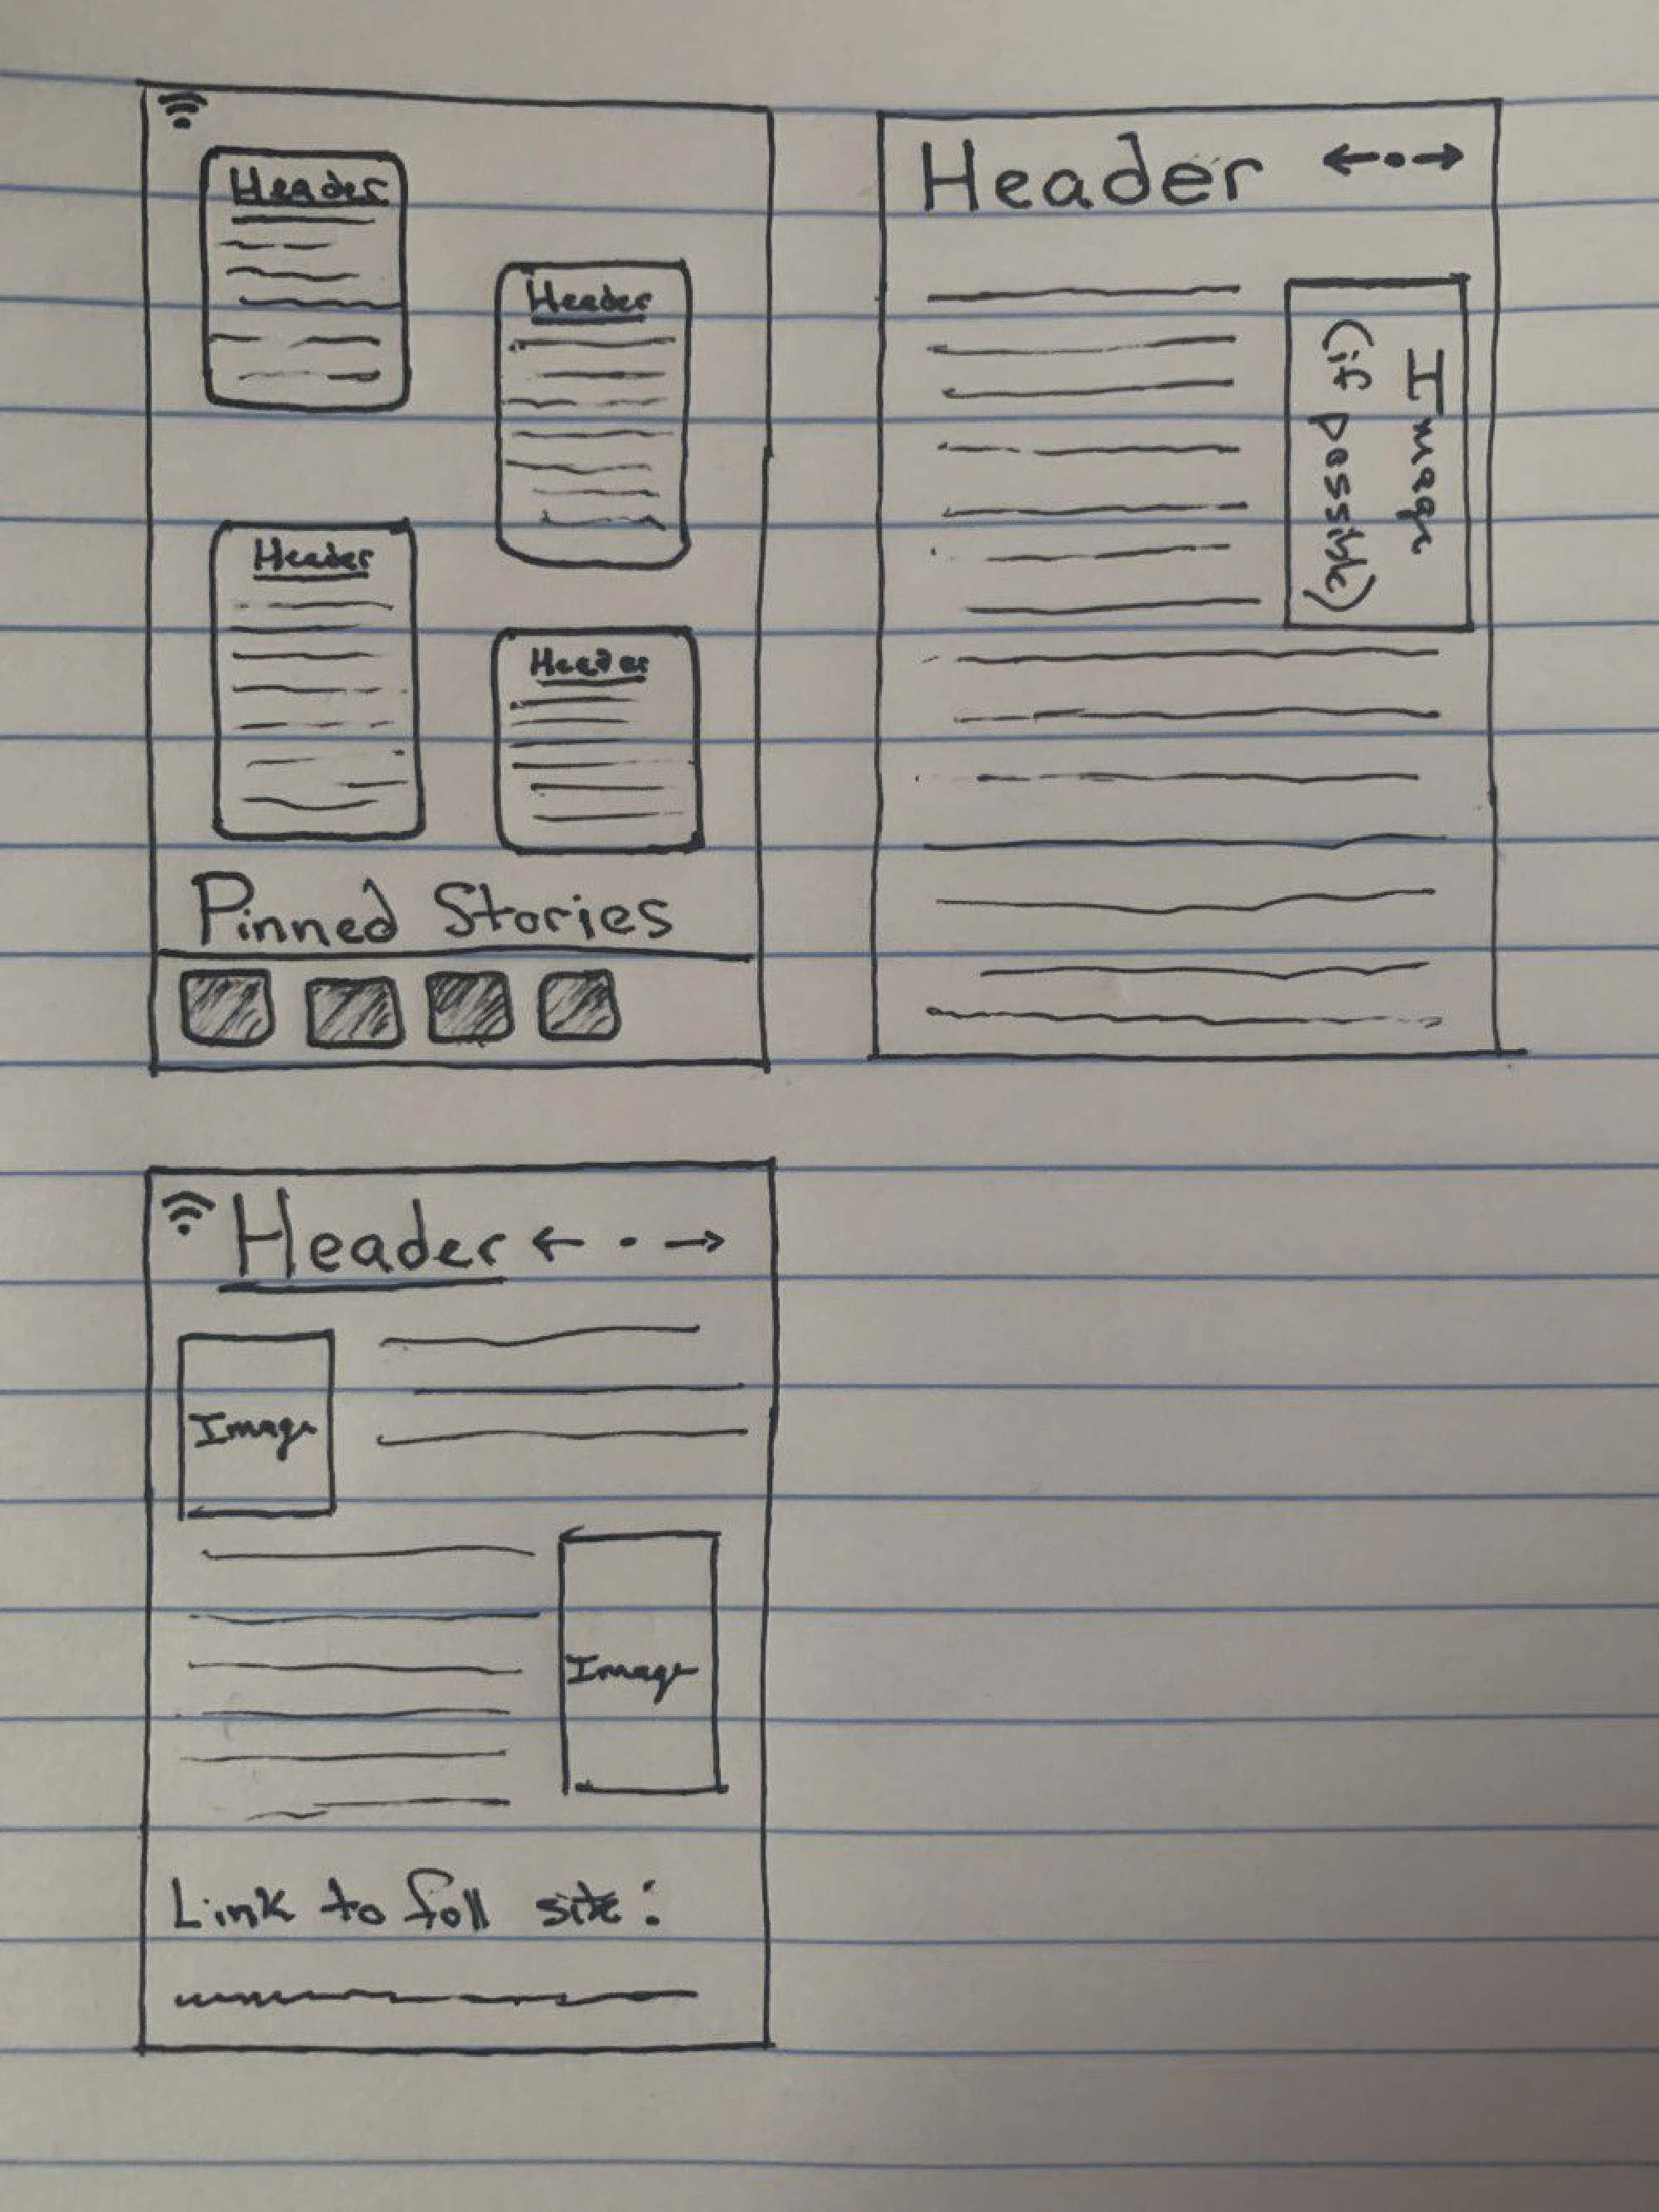 Header
Header
Header
Header
Pinned Stories
Header
Image
(if possible)
Header
Image
Image
Link to foll site: